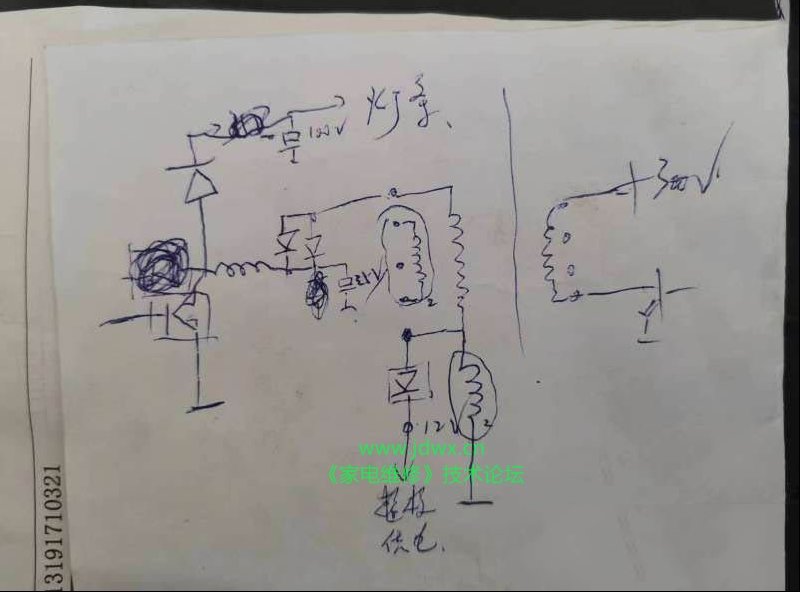 灯条、
100V
300V
2
12V
2
www.jdwx.cn
《家电维修》技术论坛
主板
供电.
13191710321